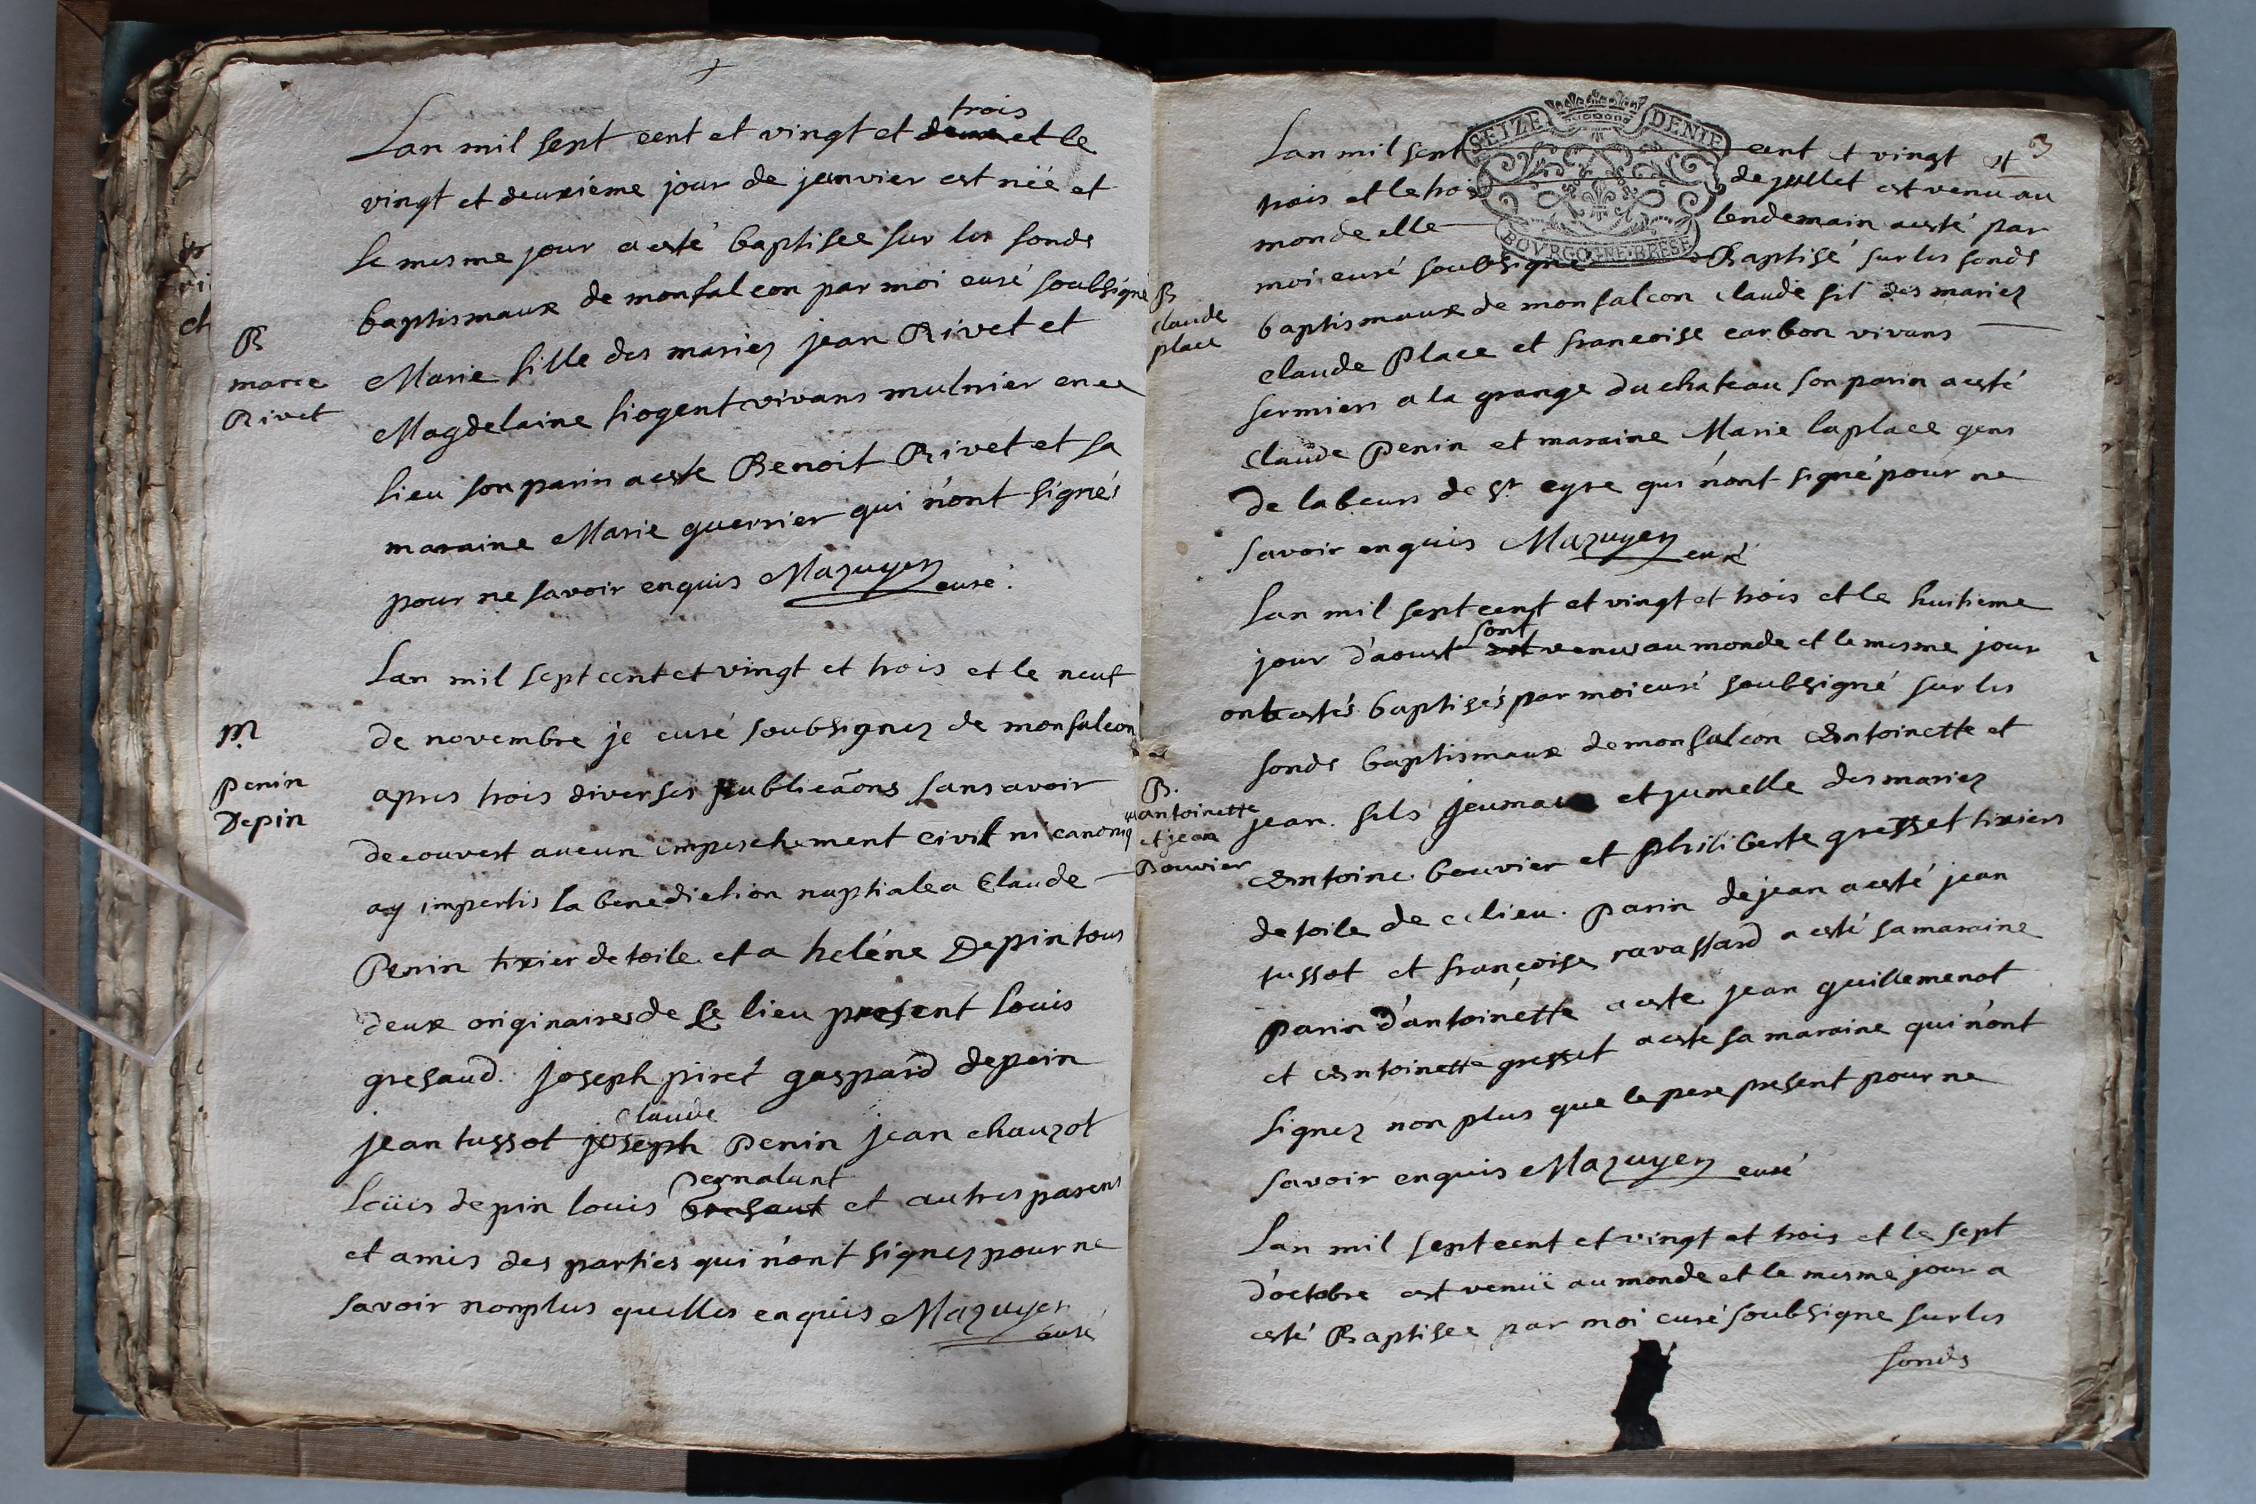 Lan mil sept cent et vingt et trois deux et le
vingt et deuxiéme jour de jenvier est néé et
le mesme jour a esté baptisee sur les fonds
baptismaux de monfalcon par moi curé soubsigné
B
marie
Rivet
Marie fille des mariez jean Rivet et
Magdelaine siogent vivans mulnier en ce
lieu son parin a este Benoit Rivet et sa
maraine Marie guerrier qui n'ont signés
pour ne savoir enquis Mazuyer
curé.
Lan mil sept cent et vingt et trois et le neuf
M
Penin
Depin
de novembre je curé soubsignez de monfalcon
apres trois diverses publicãons sans avoir
decouvert aucun empeschement civil ni canoniq
ay impertis la benediction nuptiale a Claude
Penin tixier de toile et a heléne Depin tous
deux originaires de se lieu present Louis
gresaud. joseph piret gaspard depein
jean tussot joseph claude Penin jean chauzot
Loüis depin louis Pernalunt et autres parens
et amis des parties qui n'ont signez pour ne
savoir nonplus quelles enquis Mazuyer
curé
SEIZE DENIE
BOVRGOGNE·BRESE
3
Lan mil sept cent et vingt et
trois et le trois de jullet est venu au
monde et le lendemain a esté par
moi curé soubsigné Baptisé sur les fonds
B
claude
place
baptismaux de monfalcon claude fil des mariez
claude Place et francoise carbon vivans
fermiers a la grange du chateau son parin a esté
Claude Penin et maraine Marie laplace gens
de labeurs de st cyre qui n'ont signé pour ne
savoir enquis Mazuyer
curé
Lan mil sept cent et vingt et trois et le huitieme
jour d'aoust sont est venus au monde et le mesme jour
ont estés baptisés par moi curé soubsigné sur les
fonds baptismaux de monfalcon Antoinette et
B.
antoinette
et jean
Bouvier
jean fils jeumaux et jumelle des mariez
Antoine bouvier et philiberte gresset tixiers
de toile de ce lieu. parin de jean a esté jean
tussot et françoise ravassard a esté sa maraine
parin d'antoinétte a este jean guillemenot
et Antoinette gresset a este sa maraine qui n'ont
signez non plus que le pere present pour ne
savoir enquis Mazuyer curé
Lan mil sept cent et vingt et trois et le sept
d'octobre est venüe au monde et le mesme jour a
esté Baptisee par moi curé soubsigne sur les
fonds